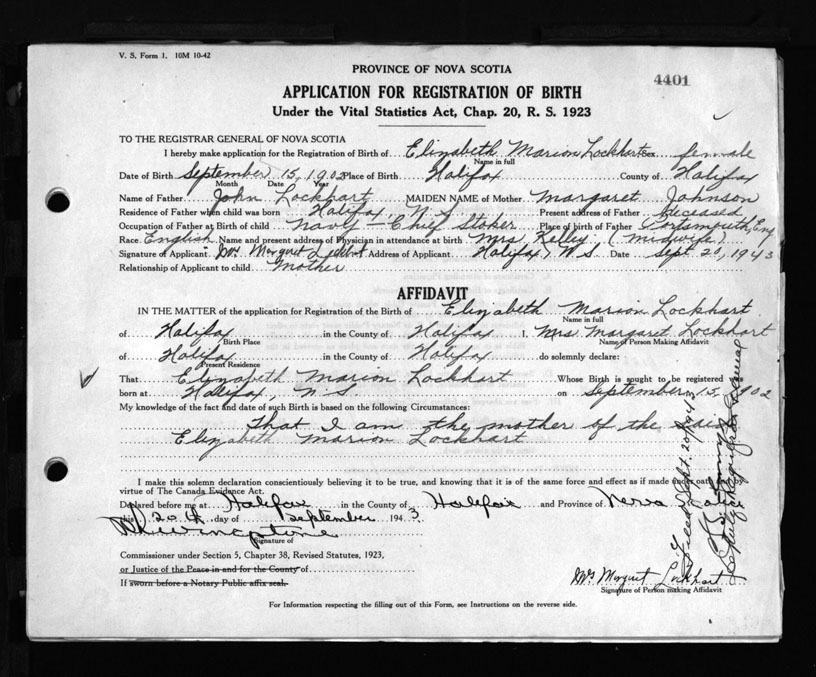 V. S. Form 1. 10M 10-42
PROVINCE OF NOVA SCOTIA
4401
APPLICATION FOR REGISTRATION OF BIRTH
Under the Vital Statistics Act, Chap. 20, R. S. 1923
TO THE REGISTRAR GENERAL OF NOVA SCOTIA
I hereby make application for the Registration of Birth of Elizabeth Marion Lockhart Sex female
Name in full
Date of Birth September 15, 1902 Place of Birth Halifax County of Halifax
Month Date Year
Name of Father John Lockhart MAIDEN NAME of Mother Margaret Johnson
Residence of Father when child was born Halifax, N.S. Present address of Father deceased
Occupation of Father at Birth of child Navy - Chief Stoker Place of birth of Father Portsmouth, Eng
Race English Name and present address of Physician in attendance at birth Mrs. Kelley (midwife)
Signature of Applicant Mrs Margaret Lockhart Address of Applicant Halifax, N.S. Date Sept. 20, 1943
Relationship of Applicant to child mother
AFFIDAVIT
IN THE MATTER of the application for Registration of the Birth of Elizabeth Marion Lockhart
Name in full
of Halifax in the County of Halifax I, Mrs. Margaret Lockhart
Birth Place Name of Person Making Affidavit
of Halifax in the County of Halifax do solemnly declare:
Present Residence
That Elizabeth Marion Lockhart Whose Birth is sought to be registered was
born at Halifax, N.S. on September 15, 1902
My knowledge of the fact and date of such Birth is based on the following Circumstances:
That I am the mother of the said
Elizabeth Marion Lockhart
I make this solemn declaration conscientiously believing it to be true, and knowing that it is of the same force and effect as if made under oath and by
virtue of The Canada Evidence Act.
Declared before me at Halifax in the County of Halifax and Province of Nova Scotia
this 20th day of September 1943
Signature of
Commissioner under Section 5, Chapter 38, Revised Statutes, 1923,
or Justice of the Peace in and for the County of
If sworn before a Notary Public affix seal.
Mrs Margaret Lockhart
Signature of Person making Affidavit
For Information respecting the filling out of this Form, see Instructions on the reverse side.
Filed Sept. 20, 1943